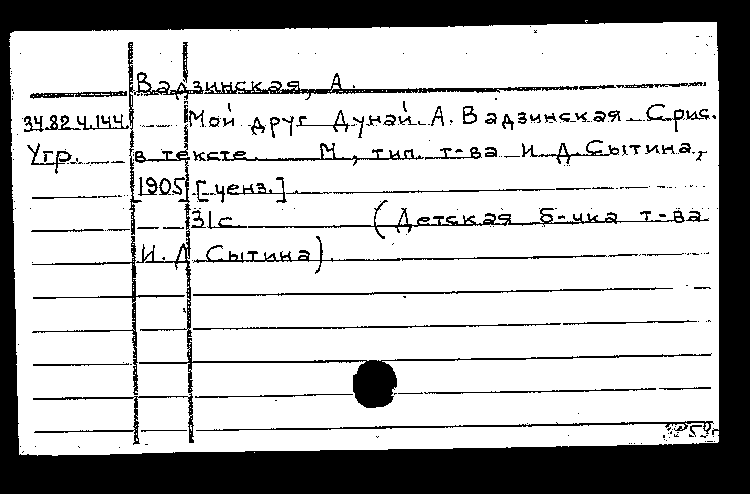 Вадзинская, А.
34.82.4.144 Мой друг Дунай. А. Вадзинская. С рис.
Угр. в тексте. М., тип. т-ва И. Д. Сытина,
1905 [ценз.].
31с. (Детская б-чка т-ва
И. Д. Сытина).